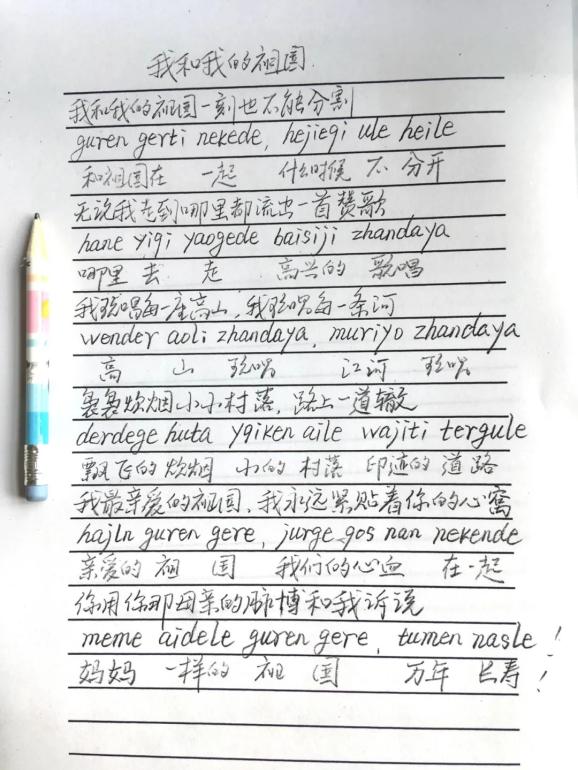 我和我的祖国
我和我的祖国一刻也不能分割
guren gerti nekede, hejieqi ule heile
和祖国在 一起 什么时候 不 分开
无论我走到哪里都流出一首赞歌
hane yiqi yaogede baisiji zhandaya
哪里 去 走 高兴的 歌唱
我歌唱每一座高山,我歌唱每一条河
wender aoli zhandaya, muriyo zhandaya
高 山 歌唱 江河 歌唱
袅袅炊烟小小村落,路上一道辙
derdege huta yqiken aile wajiti tergule
飘飞的 炊烟 小的 村落 印迹的 道路
我最亲爱的祖国、我永远紧贴着你的心窝
hajln guren gere, jurge gos nan nekende
亲爱的 祖 国 我们的心血 在一起
你用你那母亲的脉搏和我诉说
meme aidele guren gere, tumen nasle!
妈妈 一样的 祖 国 万年 长寿!